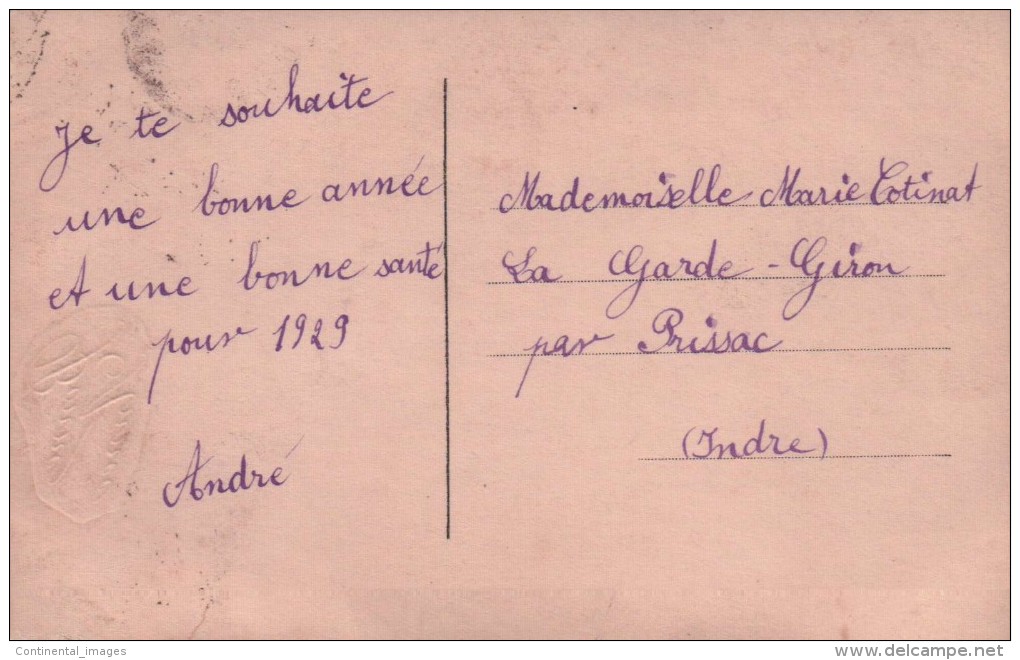 Je te souhaite
une bonne année
et une bonne santé
pour 1929
André
Mademoiselle Marie Cotinat
La Garde-Giron
par Prissac
(Indre)
Continental_images
www.delcampe.net